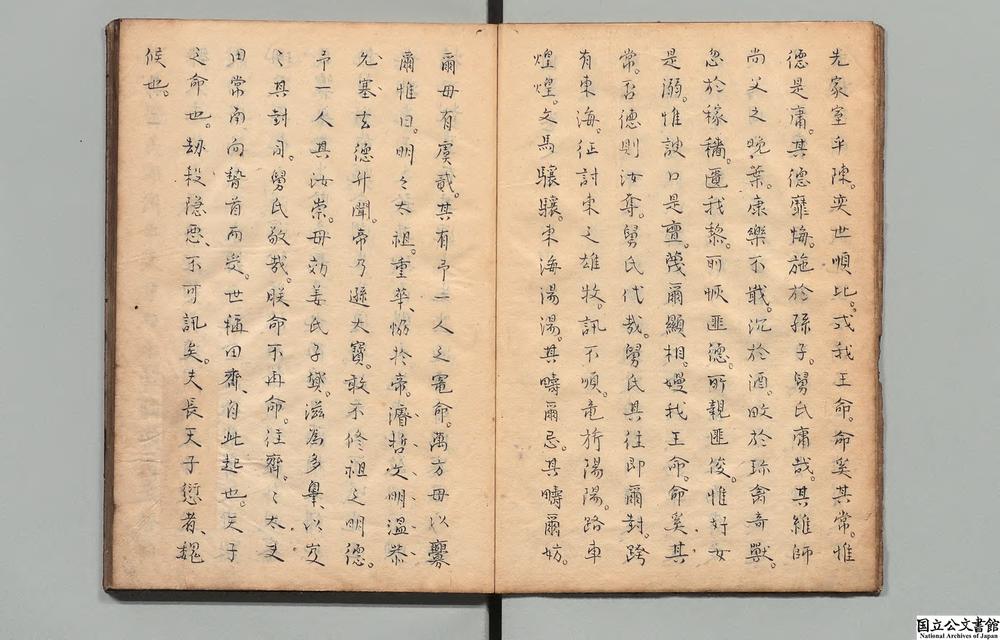 先冢室平陳。奕世順比。式我王命。命奚其常。惟
德是庸。其德靡悔。施於孫子。舅氏庸哉。其維師
尚父之晚葉。康樂不戢。沉於酒。畋於珎禽奇獸。
忽於稼穡。匿我黎。所恢匪德。所親匪俊。惟奸女
是溺。惟諛口是亶。蔑爾顯相。嫚我王命。命奚其
常。否德則汝奪。舅氏代哉。舅氏其往即爾封。跨
有東海。征討東之雄牧。訊不順。竜旂陽陽。路車
煌煌。文馬驤驤。東海湯湯。其疇爾忌。其疇爾妨。
爾毋有虞哉。其有予一人之寵命。萬方毋以釁
爾惟日。明〻太祖。重華協於帝。濬哲文明温恭
允塞玄德升聞。帝乃遜大寶。敢不修祖之明德。
予一人其汝崇。毋効姜氏子孽。滋為多辠、以
〻其封司。舅氏敬哉。朕命不再命。往齊。〻太史
田常南向贄首而受。世稱田齊、自此起也。天子
之命也。劫殺隱惡、不可訊矣。夫長天子愆者、魏
候也。
国立公文書館
National Archives of Japan